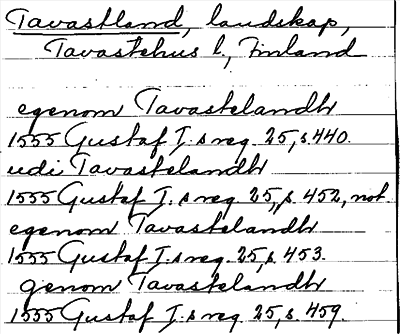 Tavastland, landskap,
Tavastehus l., Finland
egenom Tavastelandh
1555 Gustaf I:s reg. 25, s. 440.
udi Tavastelandh
1555 Gustaf I:s reg. 25, s. 452, not
egenom Tavastelandh
1555 Gustaf I:s reg. 25, s. 453.
genom Tavastelandh
1555 Gustaf I:s reg. 25, s. 459.